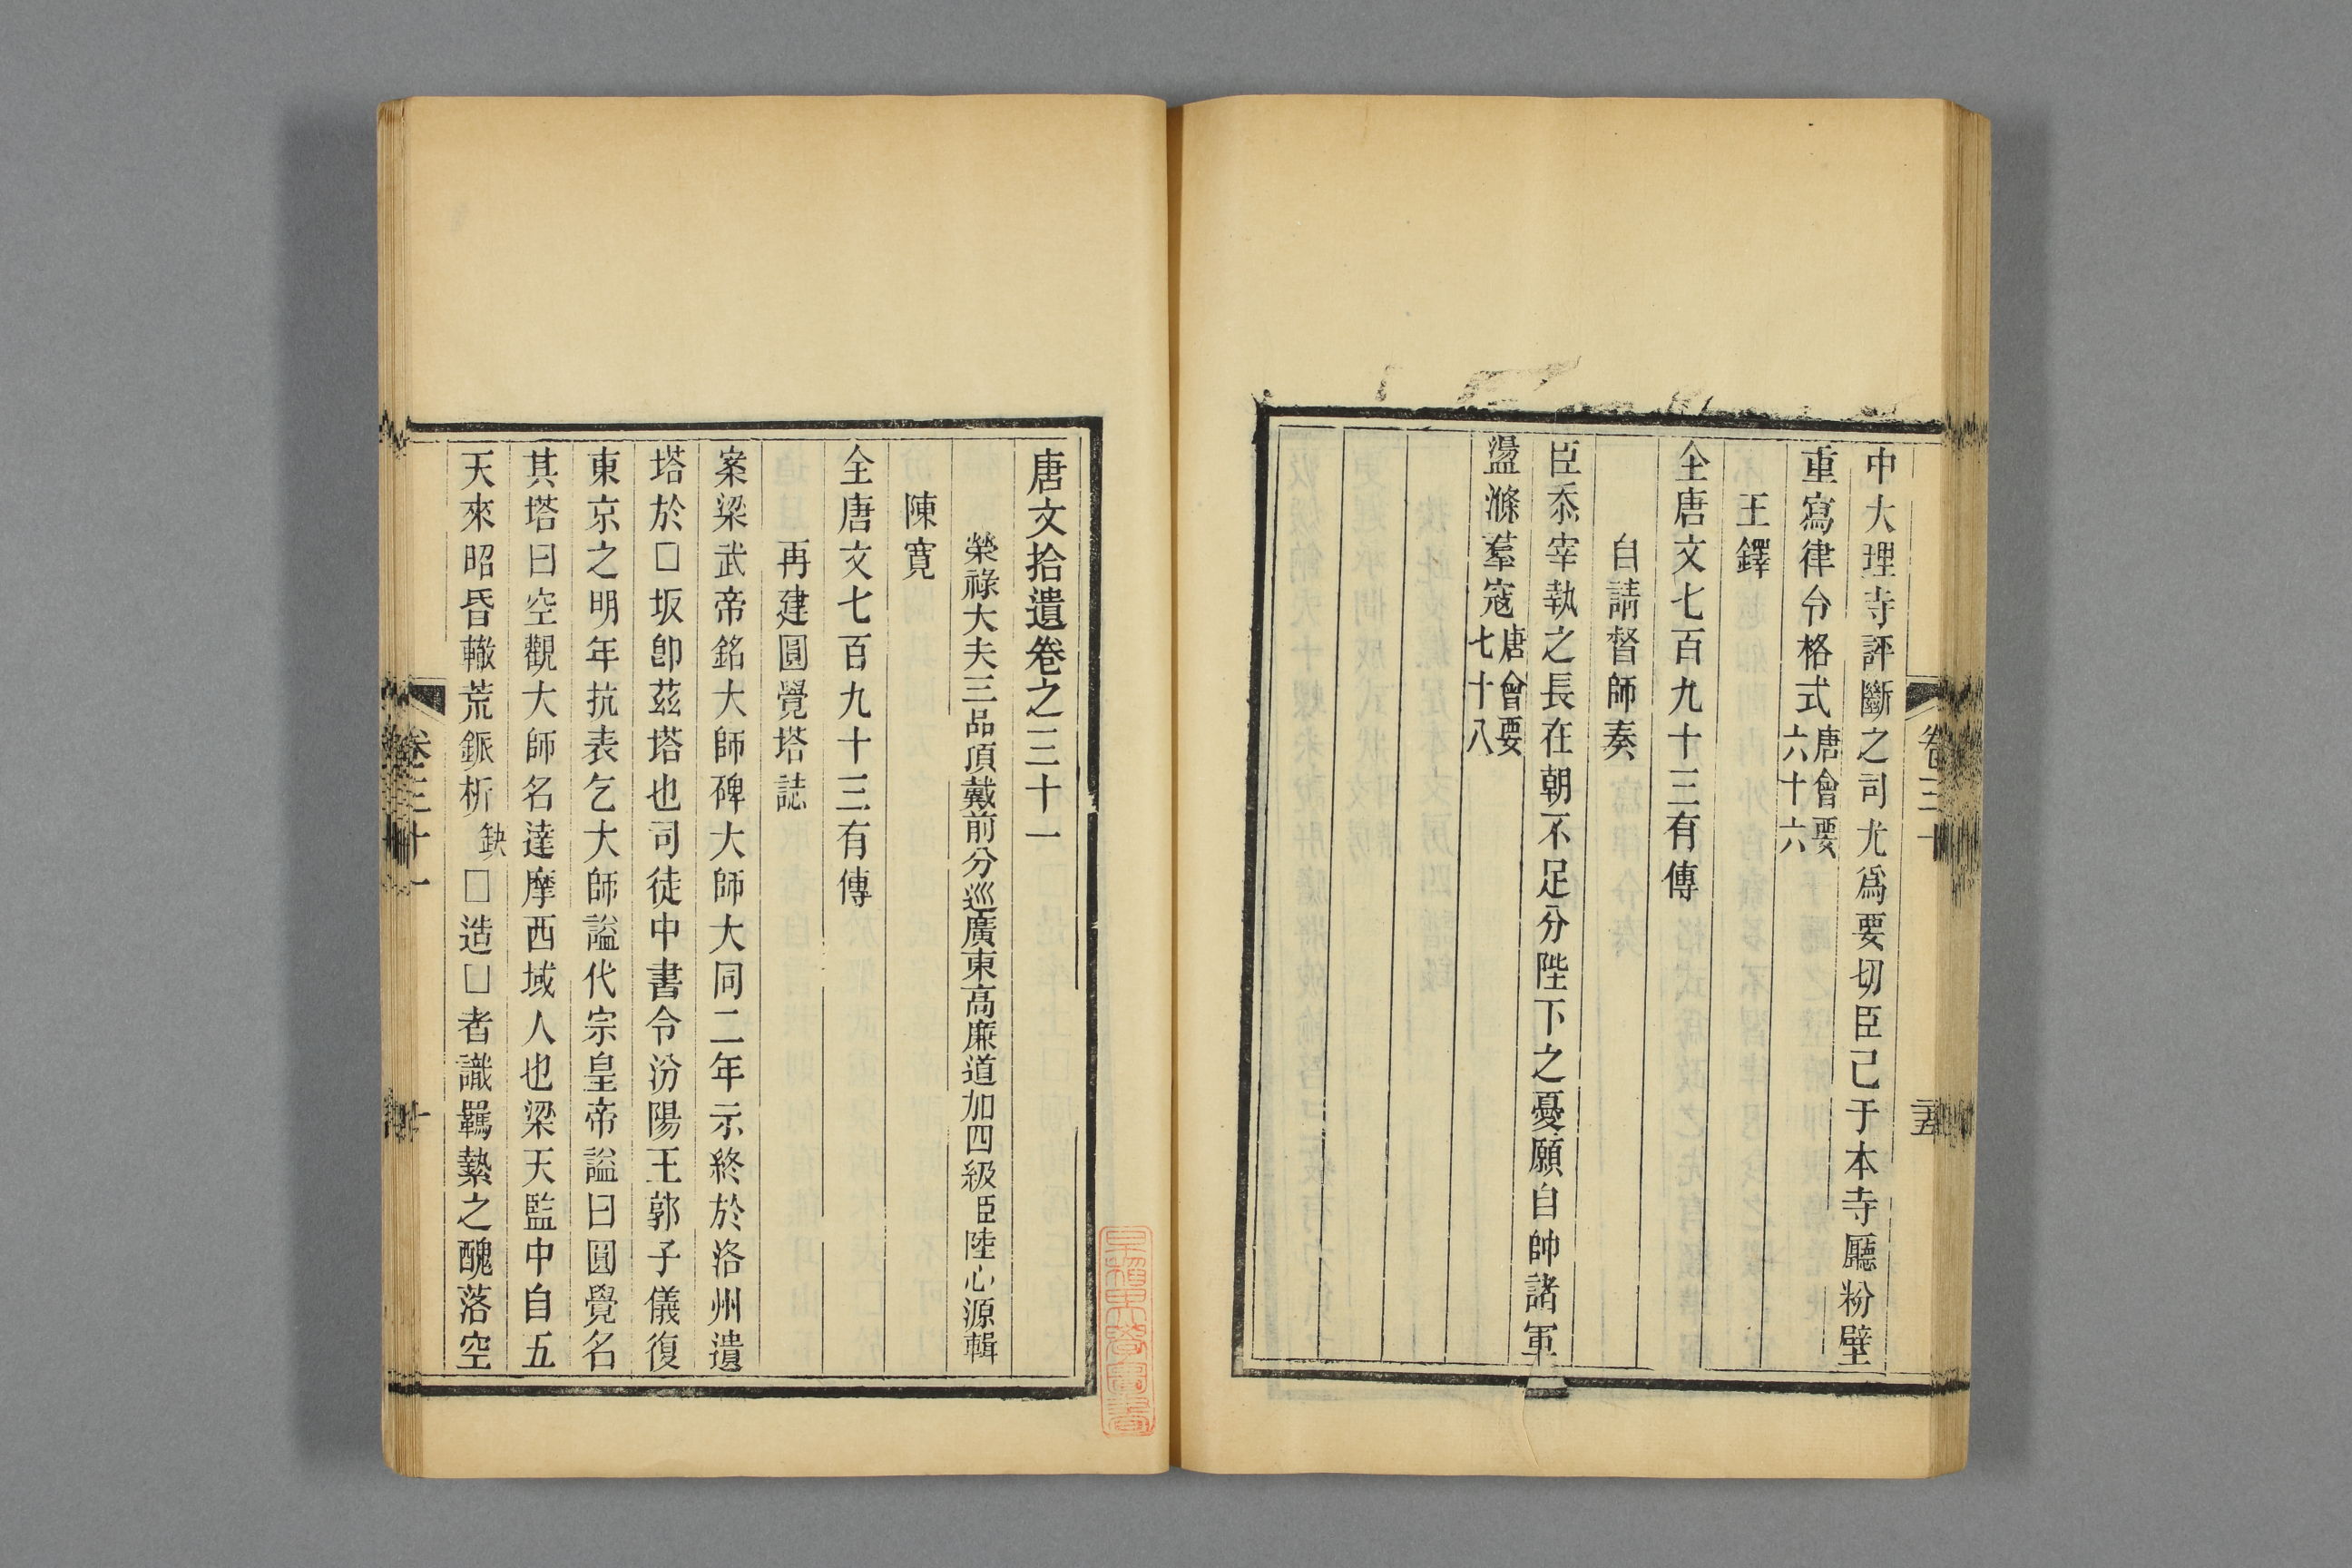 中大理寺評斷之司尤爲要切臣己于本寺廳粉壁
重寫律令格式唐會要六十六
王鐸
全唐文七百九十三有傳
自請督師奏
臣忝宰執之長在朝不足分陛下之憂願自帥諸軍
盪滌羣寇唐會要七十八
卷三十
唐文拾遺卷之三十一
榮祿大夫三品頂戴前分巡廣東高廉道加四級臣陸心源輯
陳寛
全唐文七百九十三有傳
再建圓覺塔誌
案梁武帝銘大師碑大師大同二年示終於洛州遺
塔於□坂卽茲塔也司徒中書令汾陽王郭子儀復
東京之明年抗表乞大師謚代宗皇帝謚曰圓覺名
其塔曰空觀大師名達摩西域人也梁天監中自五
天來昭昏轍荒鋠析缺□造□者識羈縶之醜落空
卷三十一